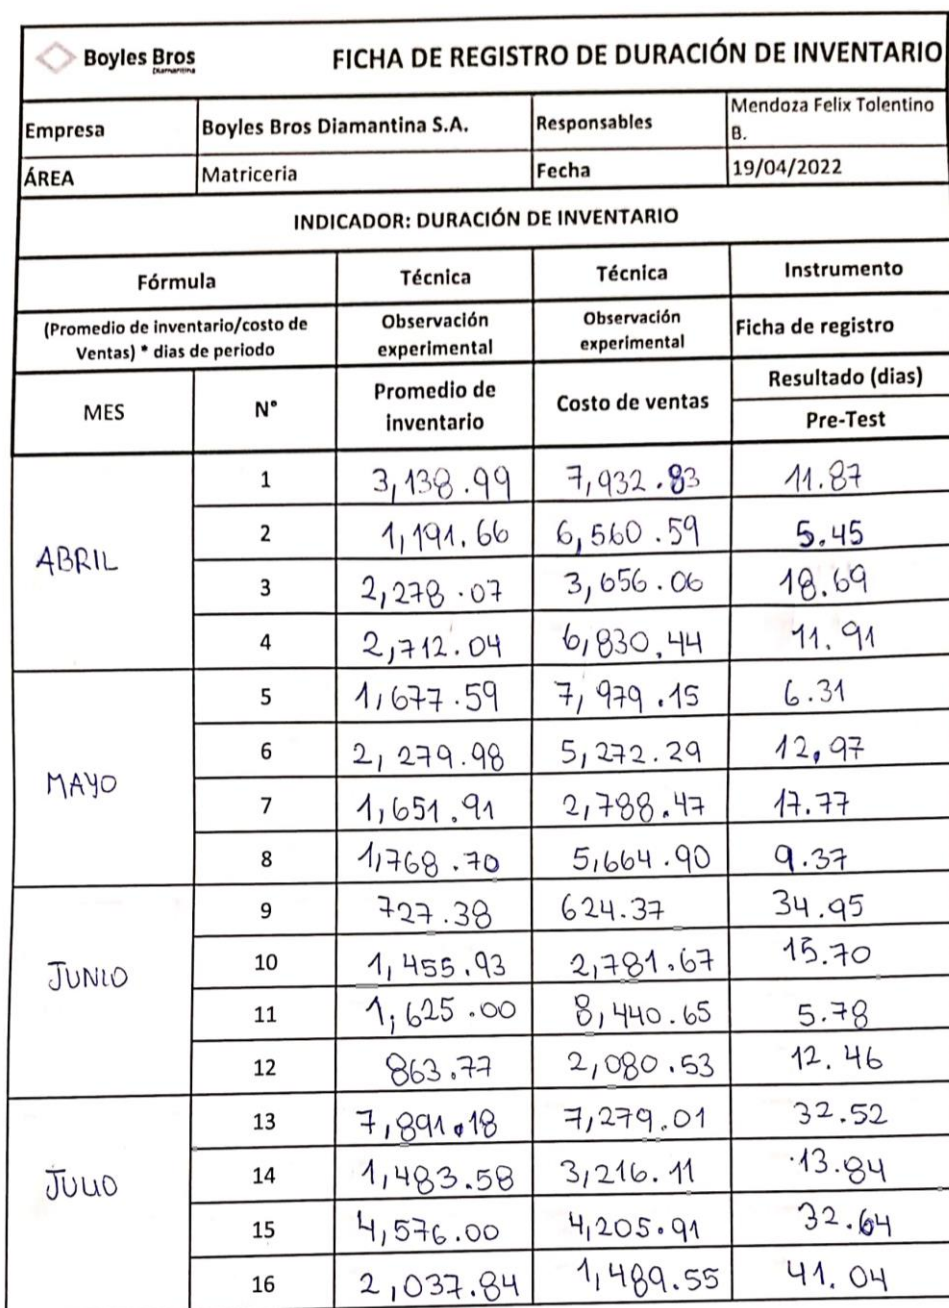 Boyles Bros
Diamantina
FICHA DE REGISTRO DE DURACIÓN DE INVENTARIO
Empresa Boyles Bros Diamantina S.A. Responsables Mendoza Felix Tolentino B.
ÁREA Matriceria Fecha 19/04/2022
INDICADOR: DURACIÓN DE INVENTARIO
Fórmula Técnica Técnica Instrumento
(Promedio de inventario/costo de Ventas) * dias de periodo Observación experimental Observación experimental Ficha de registro
MES N° Promedio de inventario Costo de ventas Resultado (dias)
Pre-Test
ABRIL
1 3,138.99 7,932.83 11.87
2 1,191.66 6,560.59 5.45
3 2,278.07 3,656.06 18.69
4 2,712.04 6,830.44 11.91
MAYO
5 1,677.59 7,979.15 6.31
6 2,279.98 5,272.29 12,97
7 1,651.91 2,788.47 17.77
8 1,768.70 5,664.90 9.37
JUNIO
9 727.38 624.37 34.95
10 1,455.93 2,781.67 15.70
11 1,625.00 8,440.65 5.78
12 863.77 2,080.53 12.46
JULIO
13 7,891.18 7,279.01 32.52
14 1,483.58 3,216.11 13.84
15 4,576.00 4,205.91 32.64
16 2,037.84 1,489.55 41.04